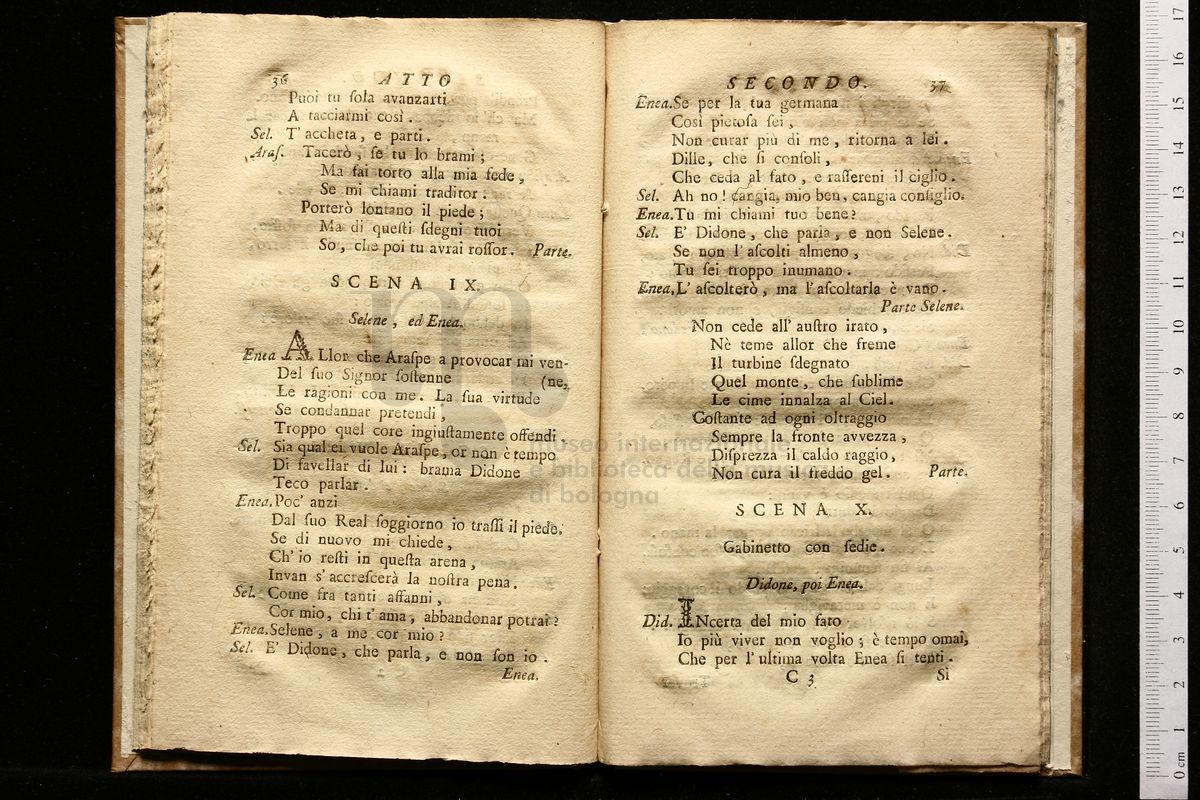 36 ATTO
Puoi tu ſola avanzarti
A tacciarmi così.
Sel. T' accheta, e parti.
Araſ. Tacerò, ſe tu lo brami;
Ma fai torto alla mia fede,
Se mi chiami traditor.
Porterò lontano il piede;
Ma di queſti ſdegni tuoi
So, che poi tu avrai roſſor. Parte.
SCENA IX.
Selene, ed Enea.
Enea ALlor che Araſpe a provocar mi ven-
Del ſuo Signor ſoſtenne (ne,
Le ragioni con me. La ſua virtude
Se condannar pretendi,
Troppo quel core ingiuſtamente offendi.
Sel. Sia qual ei vuole Araſpe, or non è tempo
Di favellar di lui: brama Didone
Teco parlar.
Enea. Poc' anzi
Dal ſuo Real ſoggiorno io traſſi il piede.
Se di nuovo mi chiede,
Ch' io reſti in queſta arena,
Invan s' accreſcerà la noſtra pena.
Sel. Come fra tanti affanni,
Cor mio, chi t' ama, abbandonar potrai?
Enea. Selene, a me cor mio?
Sel. E' Didone, che parla, e non ſon io.
Enea.
SECONDO. 37
Enea. Se per la tua germana
Così pietoſa ſei,
Non curar più di me, ritorna a lei.
Dille, che ſi conſoli,
Che ceda al fato, e raſſereni il ciglio.
Sel. Ah no! cangia, mio ben, cangia conſiglio.
Enea. Tu mi chiami tuo bene?
Sel. E' Didone, che parla, e non Selene.
Se non l' aſcolti almeno,
Tu ſei troppo inumano.
Enea. L' aſcolterò, ma l' aſcoltarla è vano.
Parte Selene.
Non cede all' auſtro irato,
Nè teme allor che freme
Il turbine ſdegnato
Quel monte, che ſublime
Le cime innalza al Ciel.
Coſtante ad ogni oltraggio
Sempre la fronte avvezza,
Diſprezza il caldo raggio,
Non cura il freddo gel. Parte.
SCENA X.
Gabinetto con ſedie.
Didone, poi Enea.
Did. INcerta del mio fato
Io più viver non voglio; è tempo omai,
Che per l' ultima volta Enea ſi tenti.
C 3 Sì
museo internazionale
e biblioteca della musica
di bologna
0 cm 1 2 3 4 5 6 7 8 9 10 11 12 13 14 15 16 17